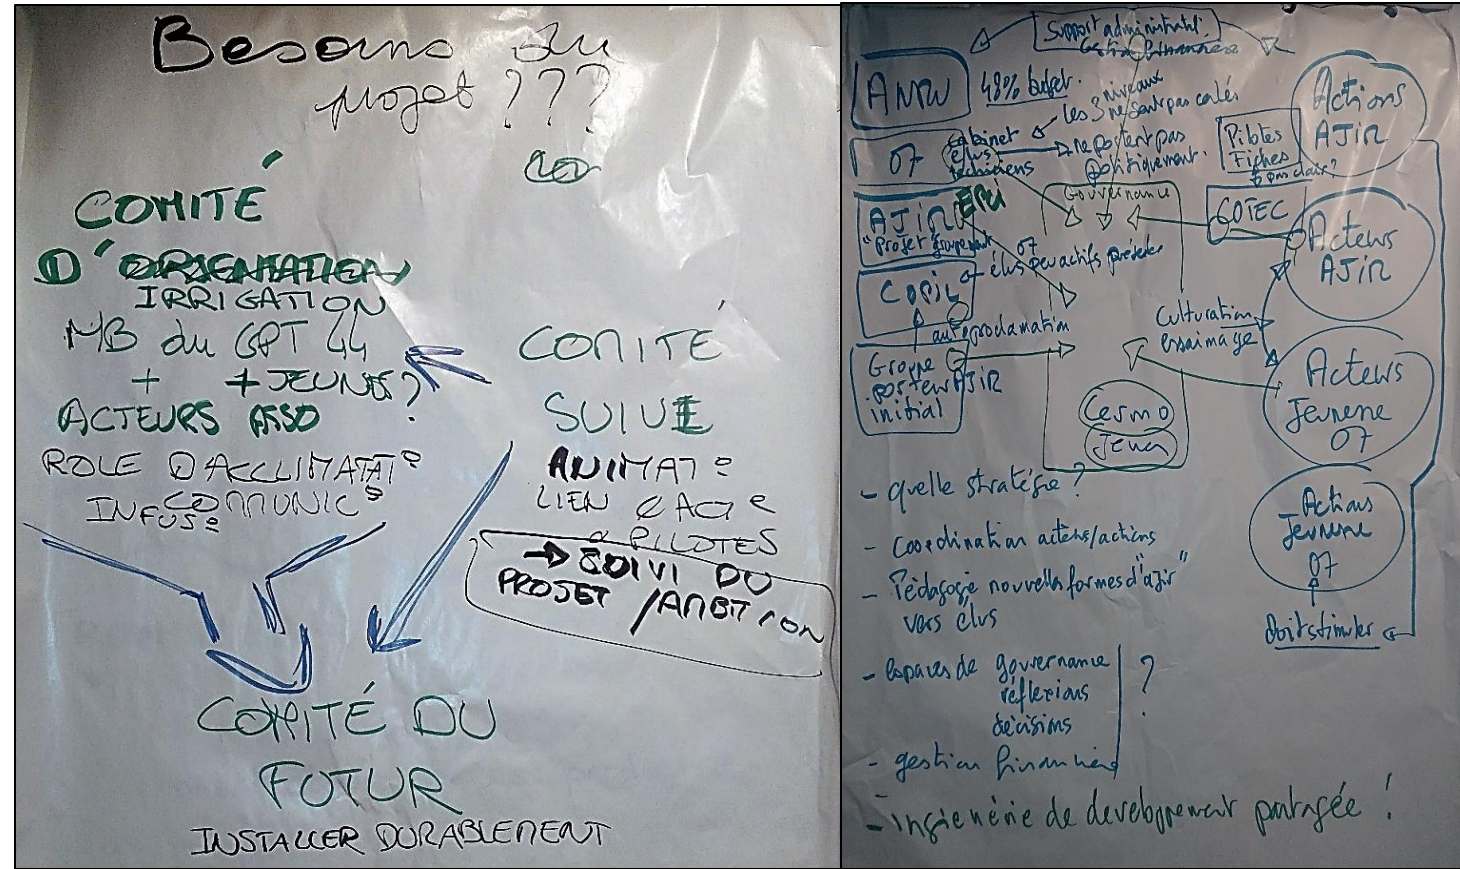 Besoins du
projet ???
COMITÉ
D'ORIENTATION
IRRIGATION
MB du GPT 44
+ + JEUNES ?
ACTEURS ASSO
ROLE D'ACCLIMATAT°
INFUS° COMMUNIC°
COMITÉ
SUIVI
ANIMAT°
LIEN
PILOTES
→ SUIVI DU
PROJET / AMBITION
COMITÉ DU
FUTUR
INSTALLER DURABLEMENT
Support administratif
Gestion financière
ANRU
48% budget.
les 3 niveaux
ne sont pas calés
07
Cabinet
élus
techniciens
ne portent pas
politiquement.
Pilotes
Fiches
pas clair ?
Actions
AJIR
AJIR
EPCI
"Projet" groupement
Gouvernance
COTEC
Acteurs
AJIR
07
élus peu actifs
COPIL
autoproclamation
Culturation
essaimage
Groupe
porteur AJIR
initial
Acteurs
Jeunesse
07
Cermo
Jena
Actions
Jeunesse
07
doit stimuler
- quelle stratégie ?
- Coordination acteurs/actions
- Pédagogie nouvelles formes d'"ajir"
vers élus
- espaces de gouvernance
réflexions
décisions
?
- gestion financière
- ingiénérie de developpement partagée !